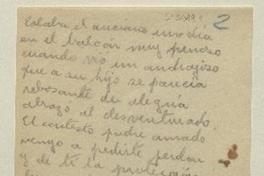 2
Estaba el anciano un dia
en el balcon muy penoso
cuando vió un andrajoso
que a su hijo se parecia
rebosante de alegria
abrazo al desventurado.
El contesto padre amado
vengo a pedirte perdon
y de ti la